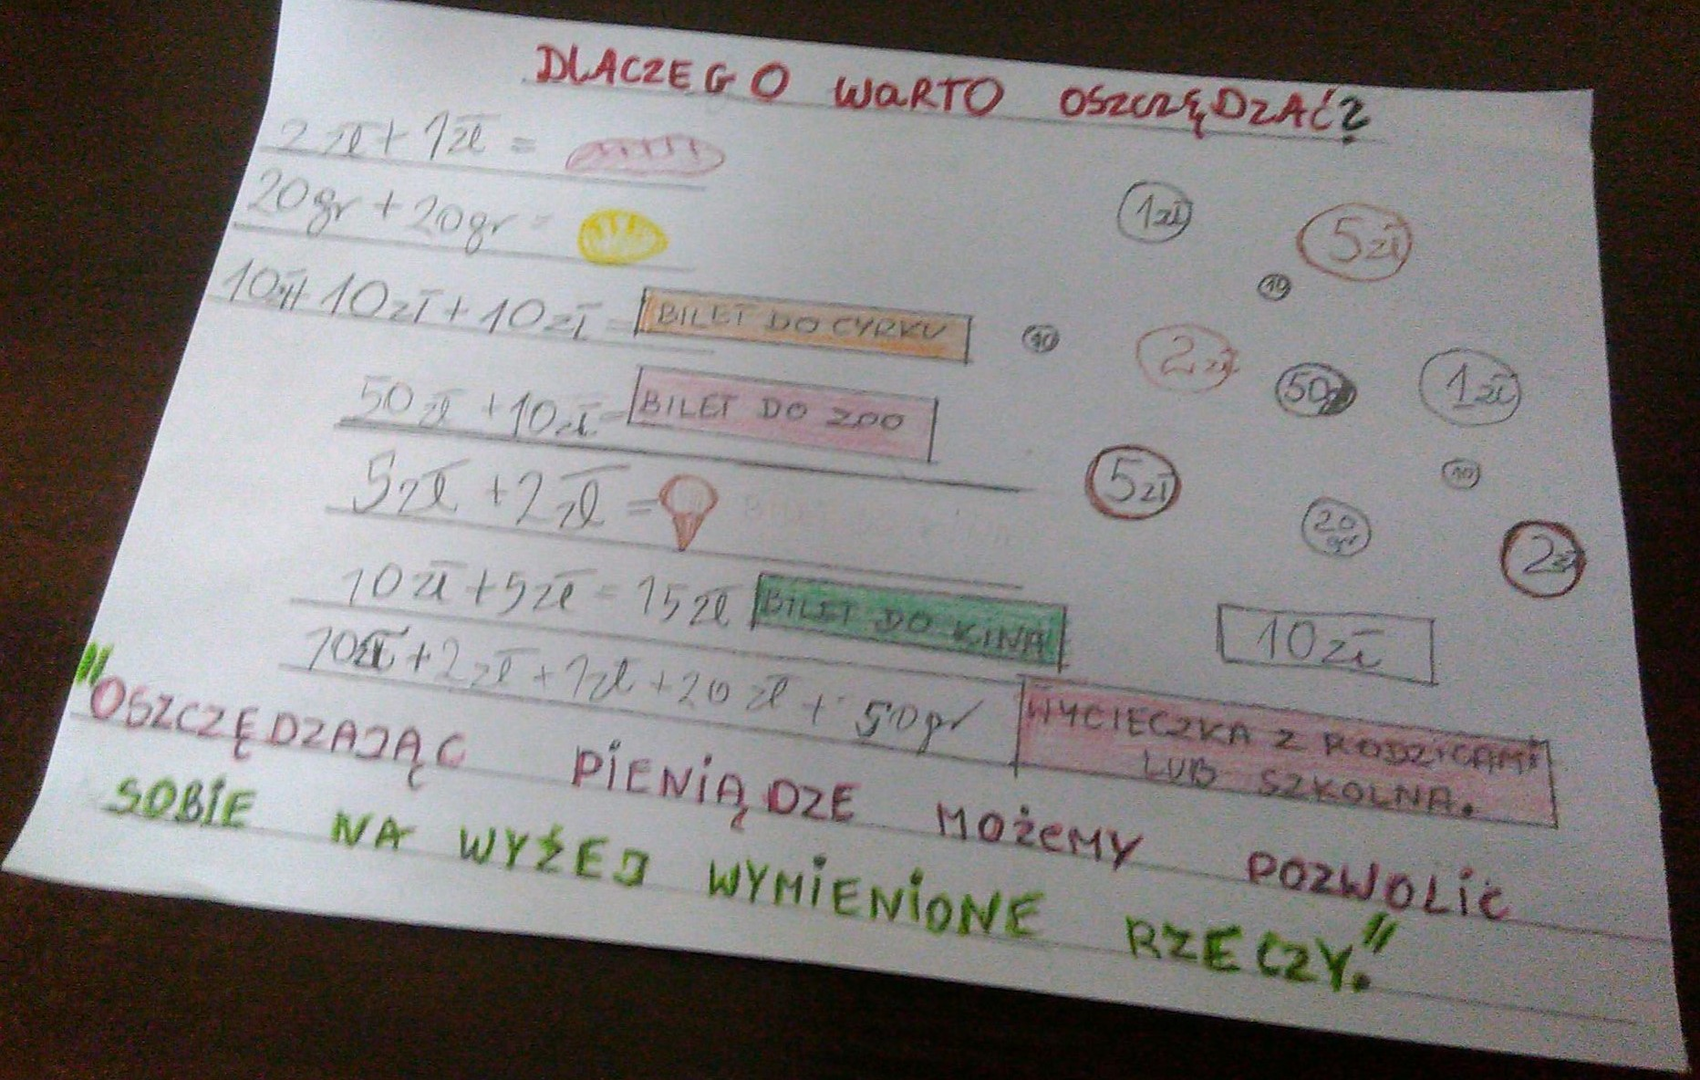 DLACZEGO WARTO OSZCZĘDZAĆ?
2zł + 1zł =
20gr + 20gr =
10zł + 10zł + 10zł = BILET DO CYRKU
50zł + 10zł = BILET DO ZOO
5zł + 2zł =
10zł + 5zł = 15zł BILET DO KINA
10zł + 2zł + 1zł + 20zł + 50gr WYCIECZKA Z RODZICAMI
LUB SZKOLNA.
1zł
5zł
10
10
2zł
50gr
1zł
5zł
10
20
gr
2zł
10zł
"OSZCZĘDZAJĄC PIENIĄDZE MOŻEMY POZWOLIĆ
SOBIE NA WYŻEJ WYMIENIONE RZECZY."